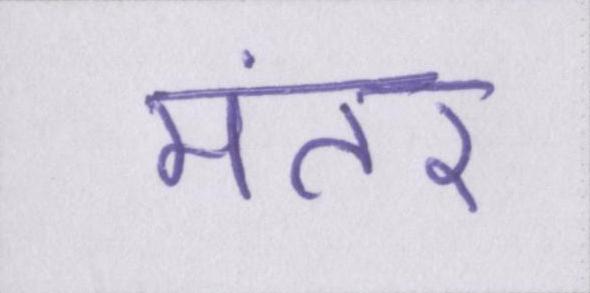 मंतर